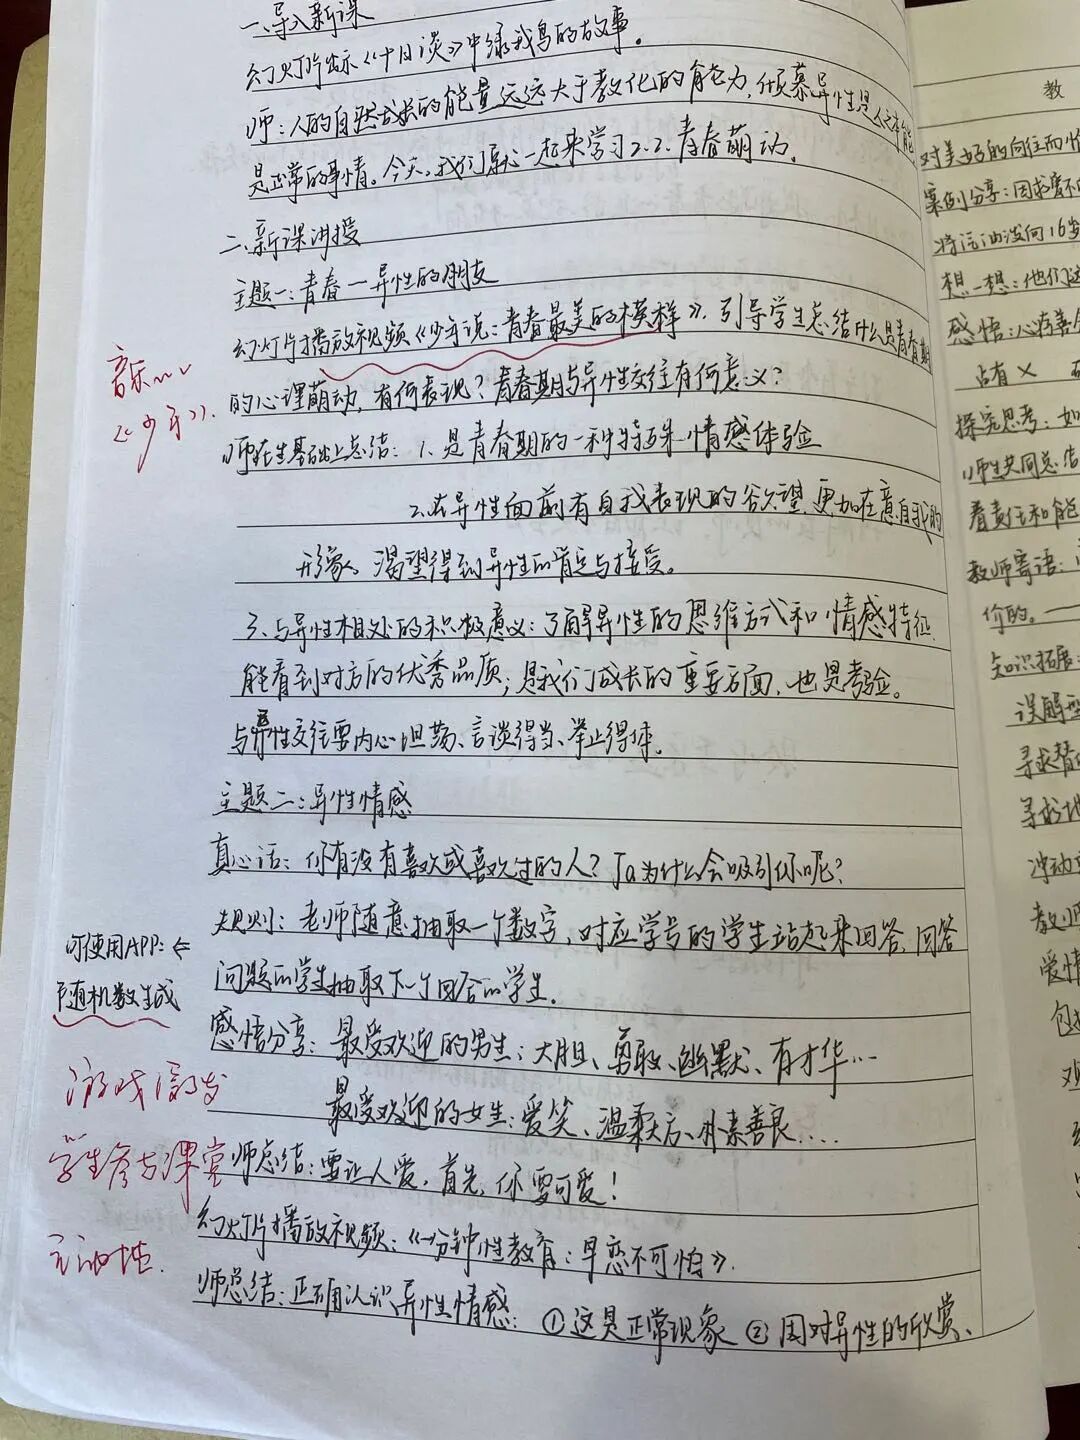 一、导入新课
幻灯片出示《十日谈》中绿鹅鸟的故事。
师：人的自然成长的能量远远大于教化的能力，倾慕异性是人之本能
是正常的事情。今天，我们就一起来学习2.2.青春萌动。
二、新课讲授
主题一：青春—异性的朋友
幻灯片播放视频《少年说：青春最美的模样》，引导学生总结什么是青春期
音乐
《少年》.
的心理萌动，有何表现？青春期与异性交往有何意义？
师在生基础上总结：1、是青春期的一种特殊情感体验
2、在异性面前有自我表现的欲望，更加在意自我的
形象、渴望得到异性的肯定与接受。
3、与异性相处的积极意义：了解异性的思维方式和情感特征
能看到对方的优秀品质；是我们成长的重要方面，也是考验。
与异性交往要内心坦荡、言谈得当、举止得体。
主题二：异性情感
真心话：你有没有喜欢或喜欢过的人？Ta为什么会吸引你呢？
规则：老师随意抽取一个数字，对应学号的学生站起来回答，回答
可使用APP：⇐
随机数生成
问题的学生抽取下一个回答的学生。
感悟分享：最受欢迎的男生：大胆、勇敢、幽默、有才华…
最受欢迎的女生：爱笑、温柔大方、朴素善良....
游戏激发
学生参与课堂
主动性.
师总结：要让人爱，首先，你要可爱！
幻灯片播放视频：《一分钟性教育：早恋不可怕》.
师总结：正确认识异性情感：①这是正常现象 ②因对异性的欣赏、
教
对美好的向往而
案例分享：因求爱不
将汽油泼向16岁
想一想：他们这
感悟：心存善
占有×
探究思考：如
师生共同总结
着责任和能
教师寄语：
价的。——
知识拓展：
误解型
寻求替
寻求地
冲动
教师
爱情
包
观